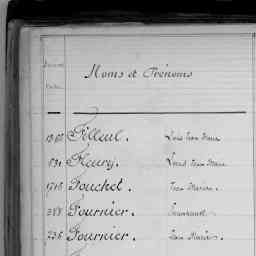 Noms et Prénoms
Filleul. Louis Jean Marie
831 Fleury. Louis Jean Marie
1718 Fouchet. Jean Marie
388 Fournier. Emmanuel
236 Fournier. Jean Marie